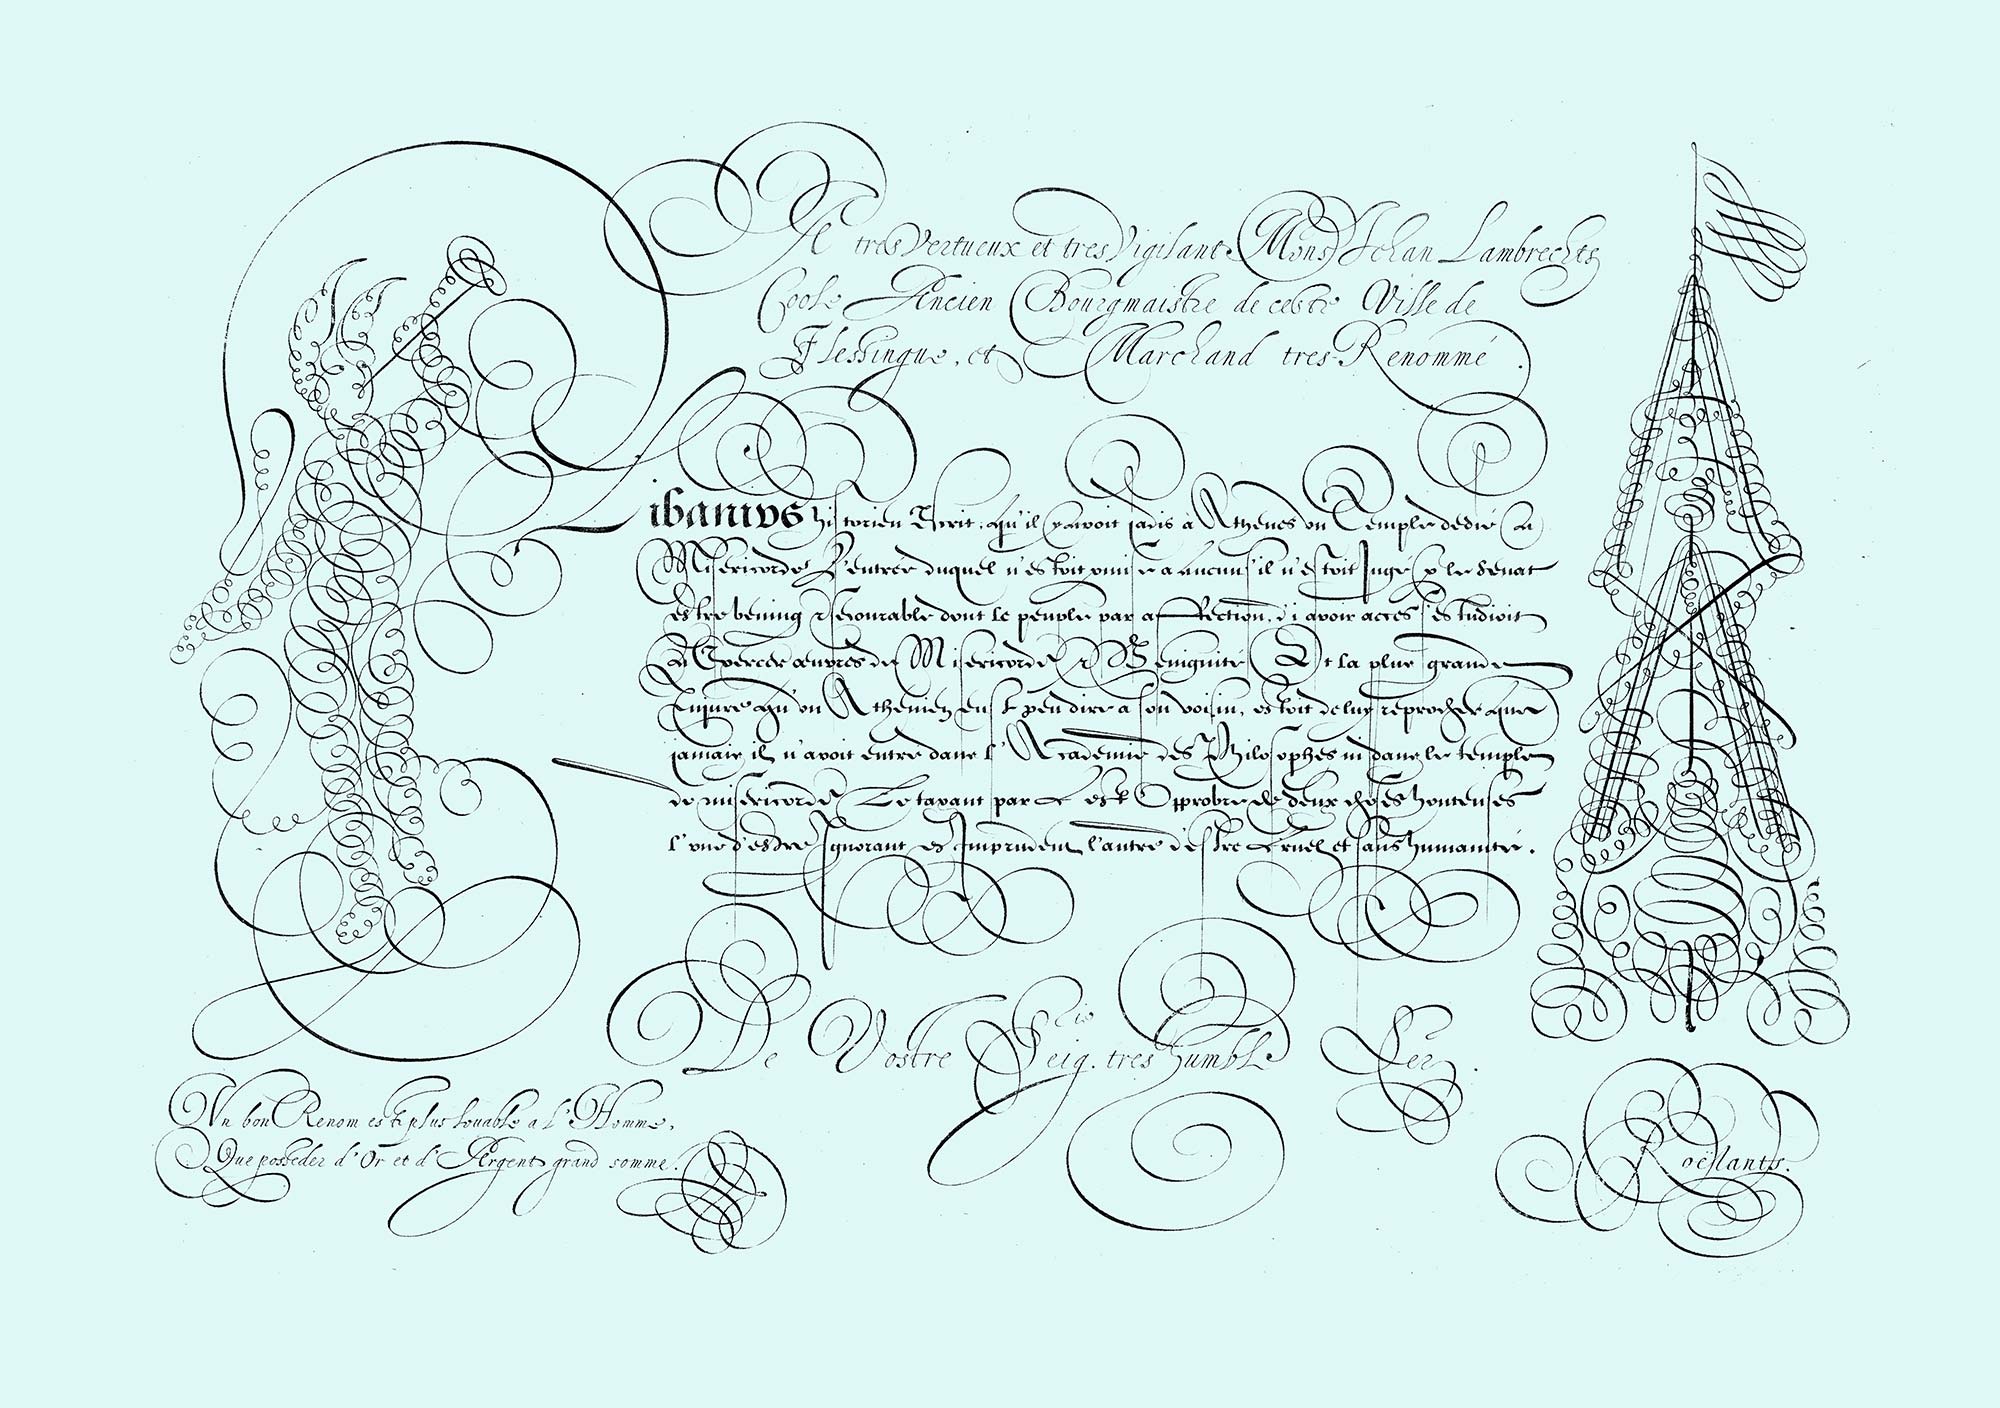 A tres Vertueux et tres Vigilant Mons Jehan Lambrechts
Coole Ancien Bourgmaistre de ceste Ville de
Flessingue, et Marchand tres Renommé.
Libanius historien Escrit, qu'il y avoit jadis à Athenes un Temple dedié a
Misericorde L'entrée duquel n'estoit permise a aucuns s'il n'estoit Jugé p le Senat
estre bening secourable dont le peuple par affection d'i avoir acces s'estudioit
a Exercer œuvres de Misericorde & Benignité Et la plus grande
Injure qu'un Athenien eust peu dire a son voisin, estoit de luy reprocher que
jamais il n'avoit entré dans l'Academie des Philosophes ni dans le temple
de misericorde Le taxant par Opprobre de deux choses honteuses
l'une d'estre Ignorant et Imprudent l'autre d'estre Cruel et sans humanité.
De Vostre Seig.rie tres humble Ser.
Un bon Renom est plus louable a l'Homme,
Que posseder d'Or et d'Argent grand somme.
Roëlants.